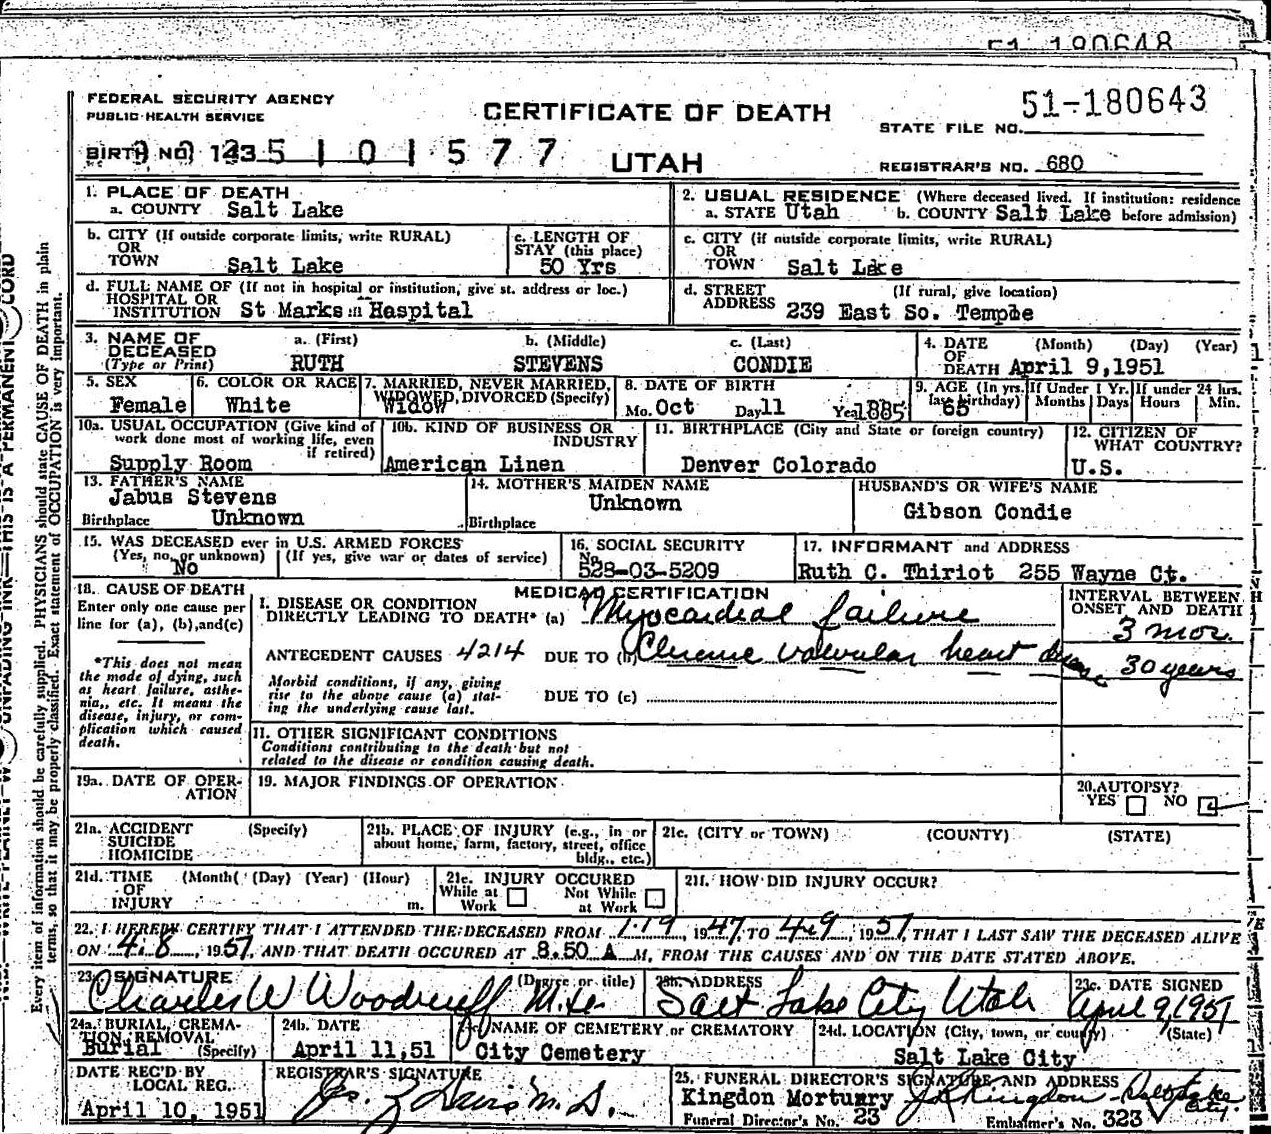 51-180648
FEDERAL SECURITY AGENCY
PUBLIC HEALTH SERVICE
CERTIFICATE OF DEATH
51-180643
STATE FILE NO.
BIRTH NO. 143 5 1 0 1 5 7 7
UTAH
REGISTRAR'S NO. 680
1. PLACE OF DEATH
a. COUNTY Salt Lake
2. USUAL RESIDENCE (Where deceased lived. If institution: residence
a. STATE Utah b. COUNTY Salt Lake before admission)
b. CITY (If outside corporate limits, write RURAL)
OR
TOWN Salt Lake
c. LENGTH OF
STAY (this place)
50 Yrs
c. CITY (if outside corporate limits, write RURAL)
OR
TOWN Salt Lake
d. FULL NAME OF (If not in hospital or institution, give st. address or loc.)
HOSPITAL OR
INSTITUTION St Marks Hospital
d. STREET (If rural, give location)
ADDRESS 239 East So. Temple
3. NAME OF
DECEASED
(Type or Print)
a. (First) b. (Middle) c. (Last)
RUTH STEVENS CONDIE
4. DATE (Month) (Day) (Year)
OF
DEATH April 9,1951
5. SEX
Female
6. COLOR OR RACE
White
7. MARRIED, NEVER MARRIED,
WIDOWED, DIVORCED (Specify)
Widow
8. DATE OF BIRTH
Mo. Oct Day 11 Year 1885
9. AGE (In yrs.
last birthday)
65
If Under 1 Yr.
Months Days
If under 24 hrs.
Hours Min.
10a. USUAL OCCUPATION (Give kind of
work done most of working life, even
if retired)
Supply Room
10b. KIND OF BUSINESS OR
INDUSTRY
American Linen
11. BIRTHPLACE (City and State or foreign country)
Denver Colorado
12. CITIZEN OF
WHAT COUNTRY?
U.S.
13. FATHER'S NAME
Jabus Stevens
Birthplace Unknown
14. MOTHER'S MAIDEN NAME
Unknown
Birthplace
HUSBAND'S OR WIFE'S NAME
Gibson Condie
15. WAS DECEASED ever in U.S. ARMED FORCES
(Yes, no, or unknown) (If yes, give war or dates of service)
No
16. SOCIAL SECURITY
No.
528-03-5209
17. INFORMANT and ADDRESS
Ruth C. Thiriot 255 Wayne Ct.
18. CAUSE OF DEATH
Enter only one cause per
line for (a), (b), and (c)
*This does not mean
the mode of dying, such
as heart failure, asthe-
nia,, etc. It means the
disease, injury, or com-
plication which caused
death.
MEDICAL CERTIFICATION
I. DISEASE OR CONDITION
DIRECTLY LEADING TO DEATH* (a) Myocardial failure
ANTECEDENT CAUSES 4214 DUE TO (b) Chronic valvular heart disease
Morbid conditions, if any, giving
rise to the above cause (a) stat-
ing the underlying cause last.
DUE TO (c)
INTERVAL BETWEEN
ONSET AND DEATH
3 mos.
30 years
II. OTHER SIGNIFICANT CONDITIONS
Conditions contributing to the death but not
related to the disease or condition causing death.
19a. DATE OF OPER-
ATION
19. MAJOR FINDINGS OF OPERATION
20. AUTOPSY?
YES NO
21a. ACCIDENT (Specify)
SUICIDE
HOMICIDE
21b. PLACE OF INJURY (e.g., in or
about home, farm, factory, street, office
bldg., etc.)
21c. (CITY or TOWN) (COUNTY) (STATE)
21d. TIME (Month( (Day) (Year) (Hour)
OF
INJURY m.
21e. INJURY OCCURED
While at Work Not While at Work
21f. HOW DID INJURY OCCUR?
22. I HEREBY CERTIFY THAT I ATTENDED THE DECEASED FROM 1-19, 1947, TO 4-9, 1951, THAT I LAST SAW THE DECEASED ALIVE
ON 4-8, 1951, AND THAT DEATH OCCURED AT 8.50 A M, FROM THE CAUSES AND ON THE DATE STATED ABOVE.
23. SIGNATURE (Degree or title)
Charles W Woodruff M.D.
23b. ADDRESS
Salt Lake City Utah
23c. DATE SIGNED
April 9, 1951
24a. BURIAL, CREMA-
TION, REMOVAL
Burial (Specify)
24b. DATE
April 11,51
24c. NAME OF CEMETERY or CREMATORY
City Cemetery
24d. LOCATION (City, town, or county) (State)
Salt Lake City
DATE REC'D BY
LOCAL REG.
April 10, 1951
REGISTRAR'S SIGNATURE
M.D.
25. FUNERAL DIRECTOR'S SIGNATURE AND ADDRESS
Kingdon Mortuary Kingdon Salt Lake City.
Funeral Director's No. 23 Embalmer's No. 323
Every item of information should be carefully supplied. PHYSICIANS should state CAUSE OF DEATH in plain
terms, so that it may be properly classified. Exact statement of OCCUPATION is very important.
UNFADING INK—THIS IS A PERMANENT RECORD